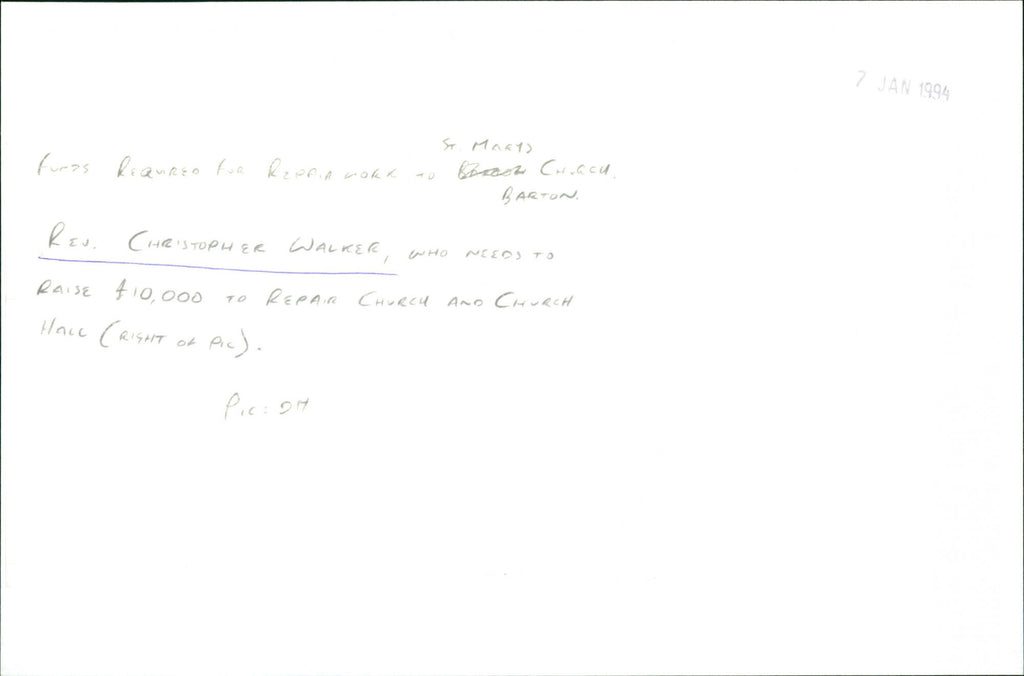 7 JAN 1994
St. Mary's
Funds Required for Repair work to Church.
Barton.
Rev. Christopher Walker, who needs to
raise £10,000 to Repair Church and Church
Hall (right of pic).
Pic: DH